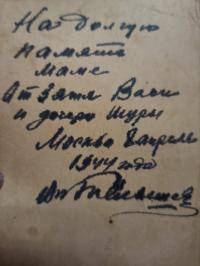 На долгую
память
маме
От зятя Васи
и дочери Шуры
Москва 8 апрель
1944 года